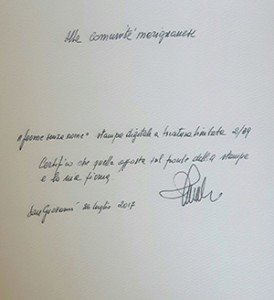 alla comunità marignanese
senza nome" stampa digitale a tiratura limitata 2/99
Certifico che quella apposta sul fronte della stampa
è la mia firma
San Giovanni luglio 2017